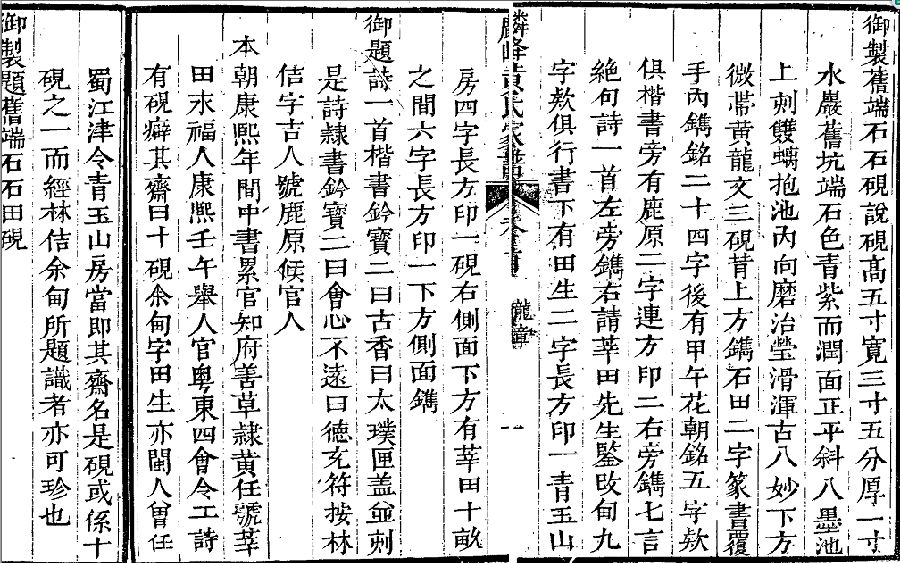 御製舊端石石硯說硯高五寸寬三寸五分厚一寸
水巖舊坑端石色青紫而潤面正平斜入墨池
上刺雙螭抱池內向磨治瑩滑渾古入妙下方
微帶黃龍文三硯背上方鐫石田二字篆書覆
手內鐫銘二十四字後有甲午花朝銘五字欵
俱楷書旁有鹿原二字連方印二右旁鐫七言
絕句詩一首左旁鐫右請莘田先生鑒政旬九
字欵俱行書下有田生二字長方印一青玉山
麟峰黃氏家譜
龍章
一
房四字長方印一硯右側面下方有莘田十畝
之間六字長方印一下方側面鐫
御題詩一首楷書鈐寶二曰古香曰太璞匣盖並刺
是詩隸書鈐寶二曰會心不遠曰德充符按林
佶字吉人號鹿原侯官人
本朝康熙年間中書累官知府善草隸黃任號莘
田永福人康熙壬午舉人官粵東四會令工詩
有硯癖其齋曰十硯余甸字田生亦閩人曾任
蜀江津令青玉山房當即其齋名是硯或係十
硯之一而經林佶余甸所題識者亦可珍也
御製題舊端石石田硯